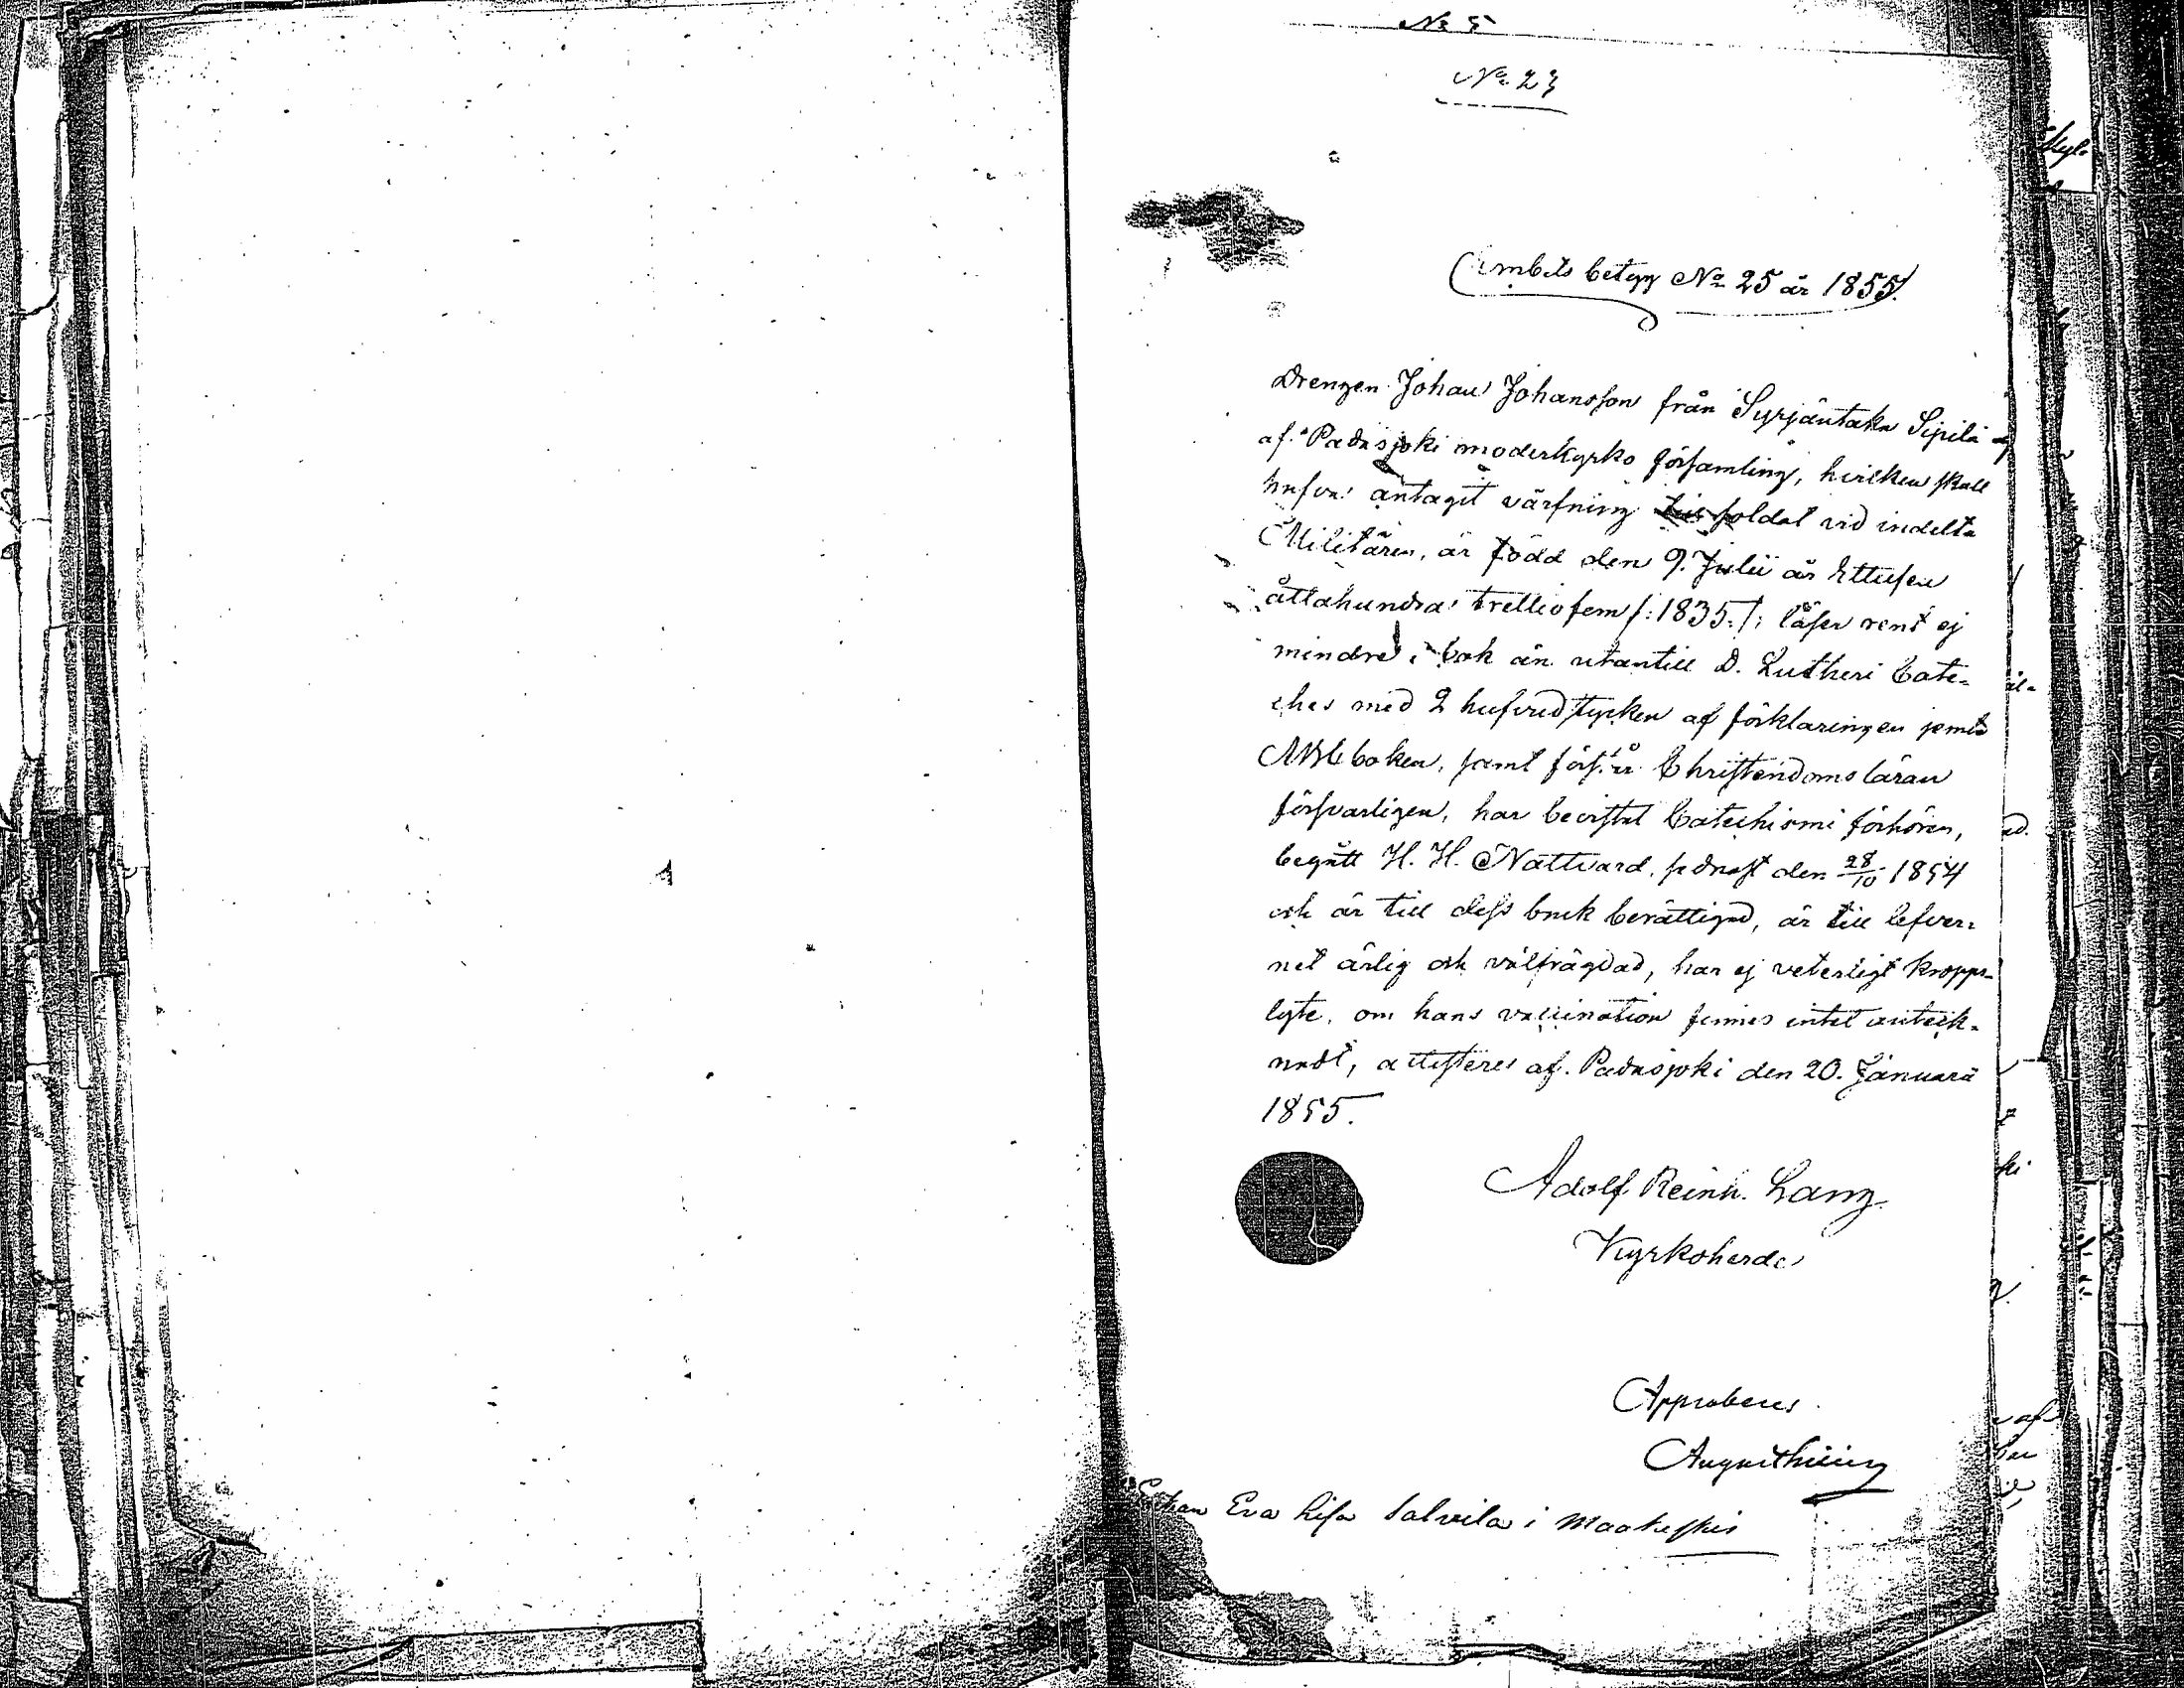 No 5
No 23
Embets betyg No 25 år 1855.
Drengen Johan Johansson från Syrjäntaka Sipilä
af Padasjoki moderkyrko församling, hvilken skall
hafva antagit värfning till soldat vid indelta
Militären, är född den 9. Julii år Ettusen
åttahundra trettiofem /: 1835 :/; läser rent ej
mindre i bok än utantill D. Lutheri Cate=
ches med 2 hufvudstycken af förklaringen jemte
ABCboken, samt förstår Christendomsläran
försvarligen, har bevistat Catechismi förhören,
begått H. H. Nattvard, sednast den 28/10 1854
och är till dess bruk berättigad, är till lefver=
net ärlig och välfrägdad, har ej veterligt kropps=
lyte, om hans vaccination finnes intet anteck=
nadt, attesteres af. Padasjoki den 20. Januarii
1855.
Adolf Reinh. Lang
Kyrkoherde
Approberes
Enkan Eva Lisa Salvila i Maakeskis